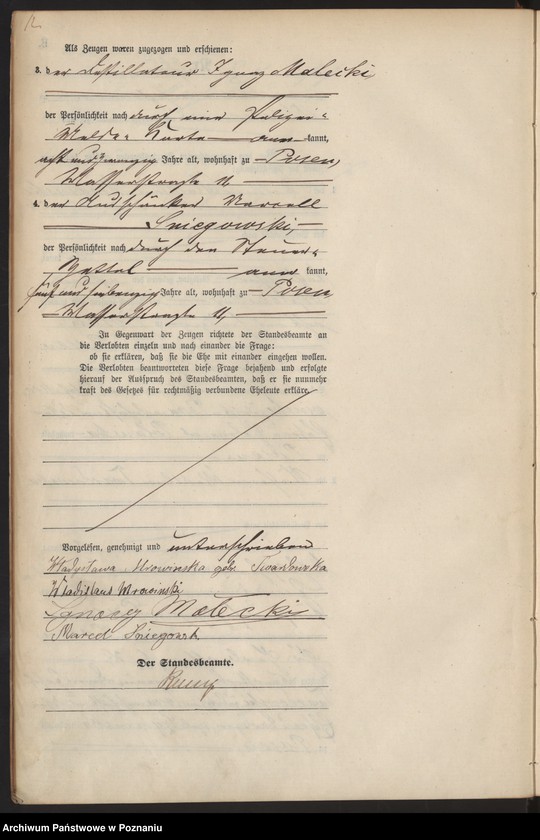 Als Zeugen waren zugezogen und erschienen:
3. der Destillateur Ignaz Malecki
der Persönlichkeit nach durch eine Polizei-
Melde-Karte anerkannt,
acht und zwanzig Jahre alt, wohnhaft zu Posen,
Wasserstraße
4. der Marcell
Sniegowski,
der Persönlichkeit nach durch den Steuer-
Zettel anerkannt,
fünf und siebenzig Jahre alt, wohnhaft zu Posen,
Wasserstraße
In Gegenwart der Zeugen richtete der Standesbeamte an
die Verlobten einzeln und nach einander die Frage:
ob sie erklären, daß sie die Ehe mit einander eingehen wollen.
Die Verlobten beantworteten diese Frage bejahend und erfolgte
hierauf der Ausspruch des Standesbeamten, daß er sie nunmehr
kraft des Gesetzes für rechtmäßig verbundene Eheleute erkläre.
Vorgelesen, genehmigt und unterschrieben
Władysława Mrowinska geb. Twardowska
Wladislaus Mrowinski
Ignacy Malecki
Marcel Sniegowski
Der Standesbeamte.
Archiwum Państwowe w Poznaniu